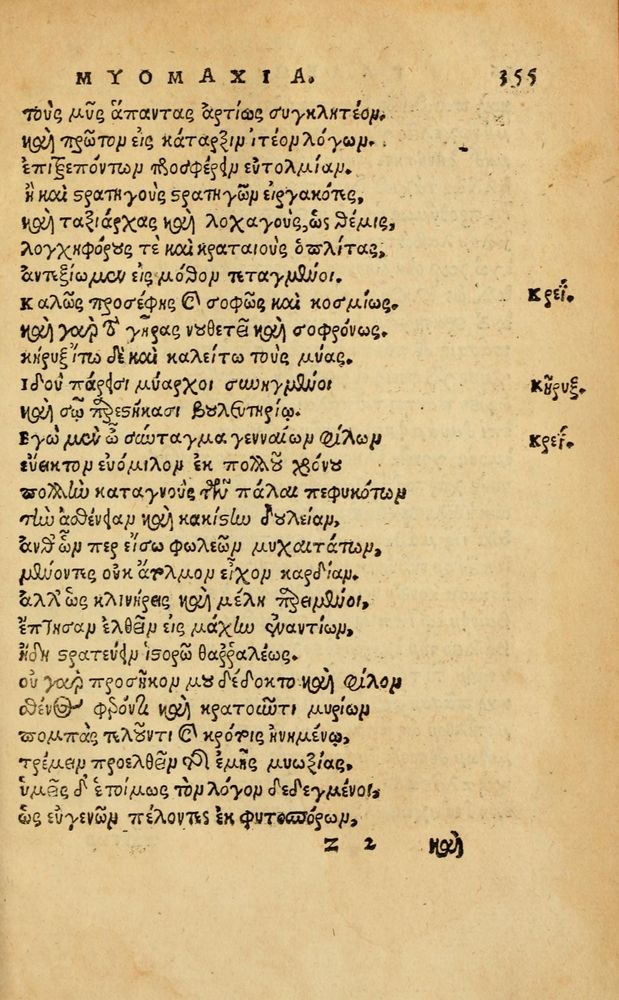 ΜΥΟΜΑΧΙΑ. 355
τοὺς μῦς ἅπαντας ἀρτίως συγκλητέον.
καὶ πρῶτον εἰς κάταρξιν ἰτέον λόγων.
ἐπιξεπόντων προσφέρειν εὐτολμίαν.
ἢ καὶ στρατηγοὺς στρατηγῶν εἰργακότες,
καὶ ταξιάρχας καὶ λοχαγοὺς, ὡς θέμις,
λογχηφόρους τὲ καὶ κραταιοὺς ὁπλίτας,
ἀντεξίωμεν εἰς μόθον τεταγμένοι.
Καλῶς προσέφης καὶ σοφῶς καὶ κοσμίως. Κρεΐ.
καὶ γὰρ τὸ γῆρας νουθετεῖ καὶ σοφρόνως.
κήρυξ ἴτω δὲ καὶ καλείτω τοὺς μύας.
Ἰδοὺ πάρεισι μύαρχοι συνηγμένοι Κῆρυξ.
καὶ σῷ πρεστήκασι βουλευτηρίῳ.
Ἐγὼ μὲν ὦ σύνταγμα γενναίων φίλων Κρεΐ.
εὔεικτον εὐόμιλον ἐκ πολλοῦ χρόνου
πολλὴν καταγνοὺς τὴν πάλαι πεφυκότων
τὴν ἀσθένειαν καὶ κακίστην δουλείαν,
ἀνθ' ὧν περ εἴσω φωλεῶν μυχαιτάτων,
μένοντες οὐκ ἄτλμον εἶχον καρδίαν.
ἀλλ' ὡς κλινήρεις καὶ μέλη παρειμένοι,
ἔπτησαν ἐλθεῖν εἰς μάχην ἐναντίων,
ἤδη στρατεύειν ἱστορῶ θαῤῥαλέως.
οὐ γὰρ προσῆκον μου δέδοκτο καὶ φίλον
σθένος φρονοῦντι καὶ κρατοῦντι μυρίων
πομπὰς τελοῦντι καὶ κρότοις ἠνημένῳ,
τρέμειν προελθεῖν τῆς ἐμῆς μυωξίας.
ὑμεῖς δ' ἑτοίμως τὸν λόγον δεδεγμένοι,
ὡς εὐγενῶν πέλοντες ἐκ φυτοσπόρων,
Z 2 καὶ